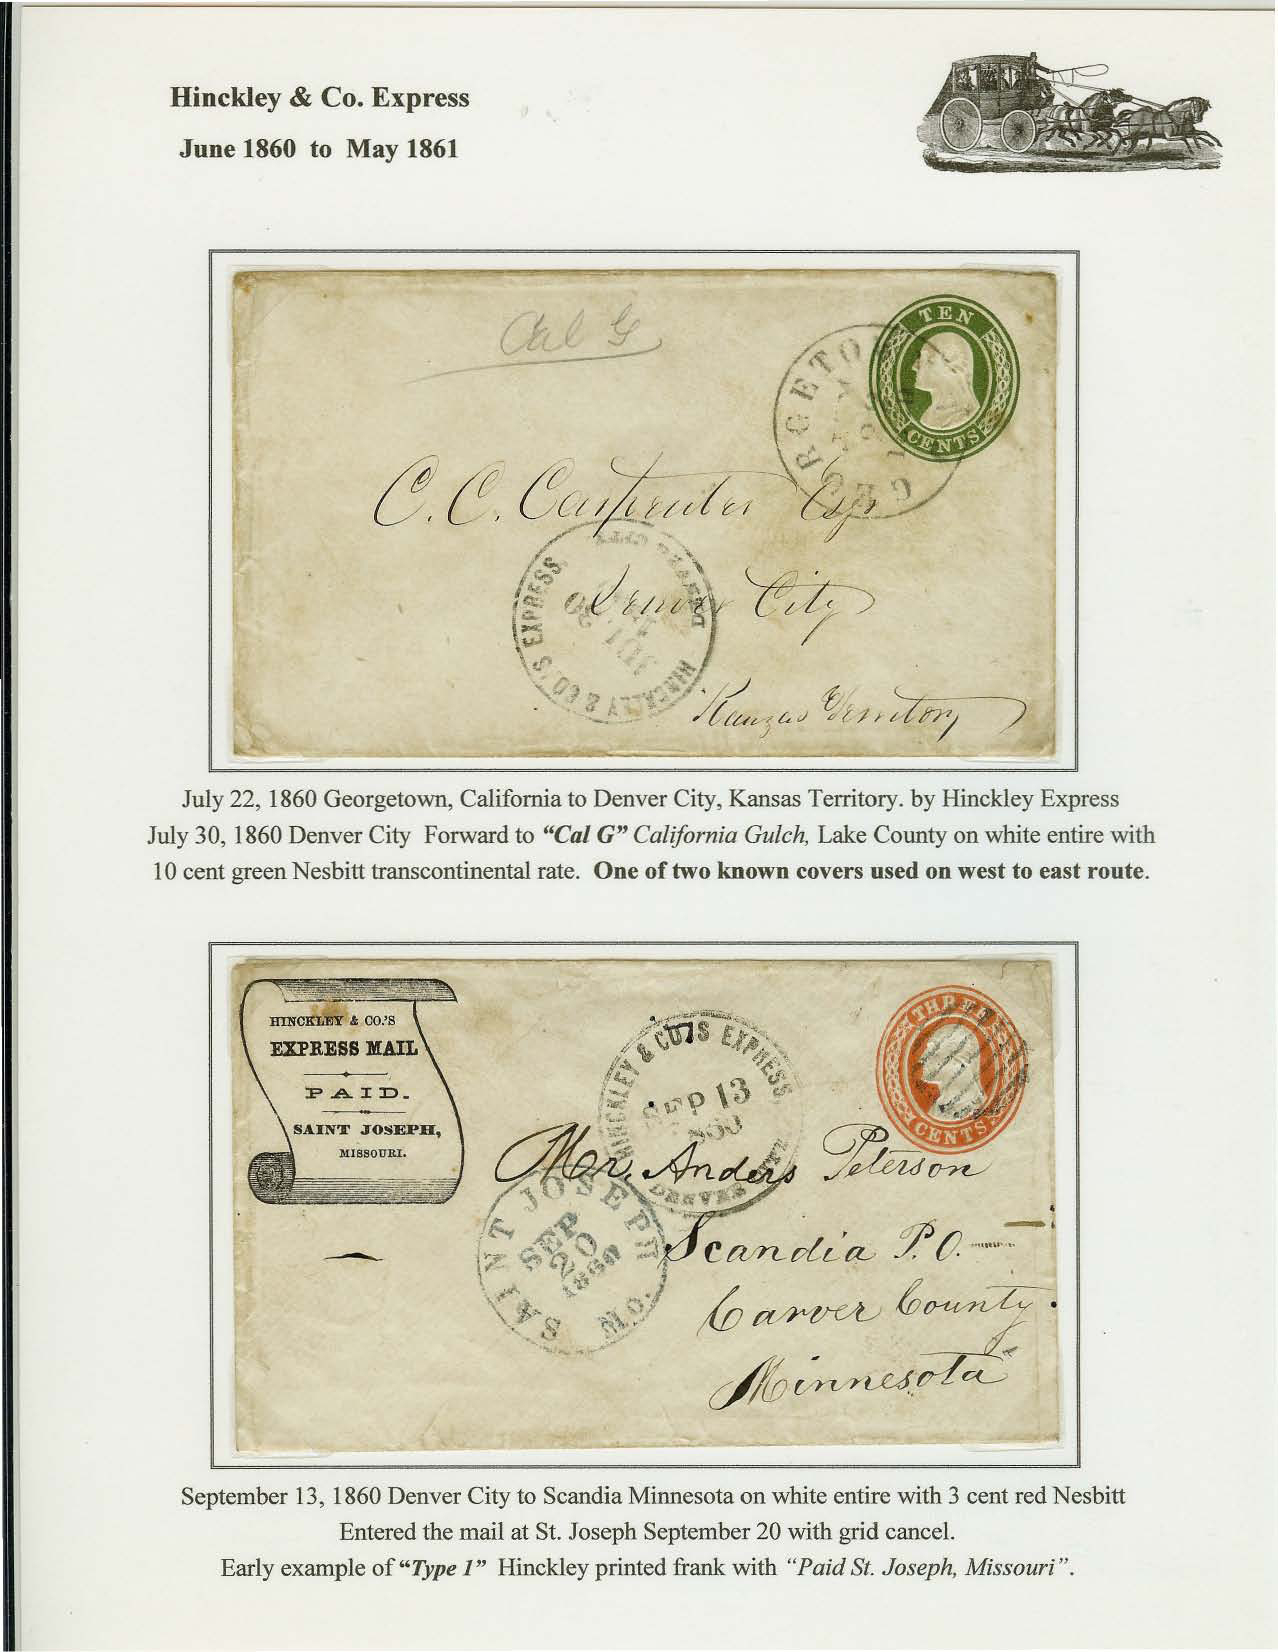 Hinckley & Co. Express
June 1860 to May 1861
Cal G
TEN
CENTS
GEORGETO
C. C. Carpenter Esqr
Denver City
Kanzas Territory
HINCKLEY & CO.'S EXPRESS.
DENVER CITY
JUL 30
July 22, 1860 Georgetown, California to Denver City, Kansas Territory. by Hinckley Express
July 30, 1860 Denver City Forward to "Cal G" California Gulch, Lake County on white entire with
10 cent green Nesbitt transcontinental rate. One of two known covers used on west to east route.
HINCKLEY & CO.'S
EXPRESS MAIL
PAID.
SAINT JOSEPH,
MISSOURI.
HINCKLEY & CO.'S EXPRESS,
SEP 13
1860
DENVER CITY
THREE
CENTS
Mr. Anders Peterson
SAINT JOSEPH MO.
SEP
20
1860
Scandia P. O.
Carver County
Minnesota
September 13, 1860 Denver City to Scandia Minnesota on white entire with 3 cent red Nesbitt
Entered the mail at St. Joseph September 20 with grid cancel.
Early example of "Type 1" Hinckley printed frank with "Paid St. Joseph, Missouri".